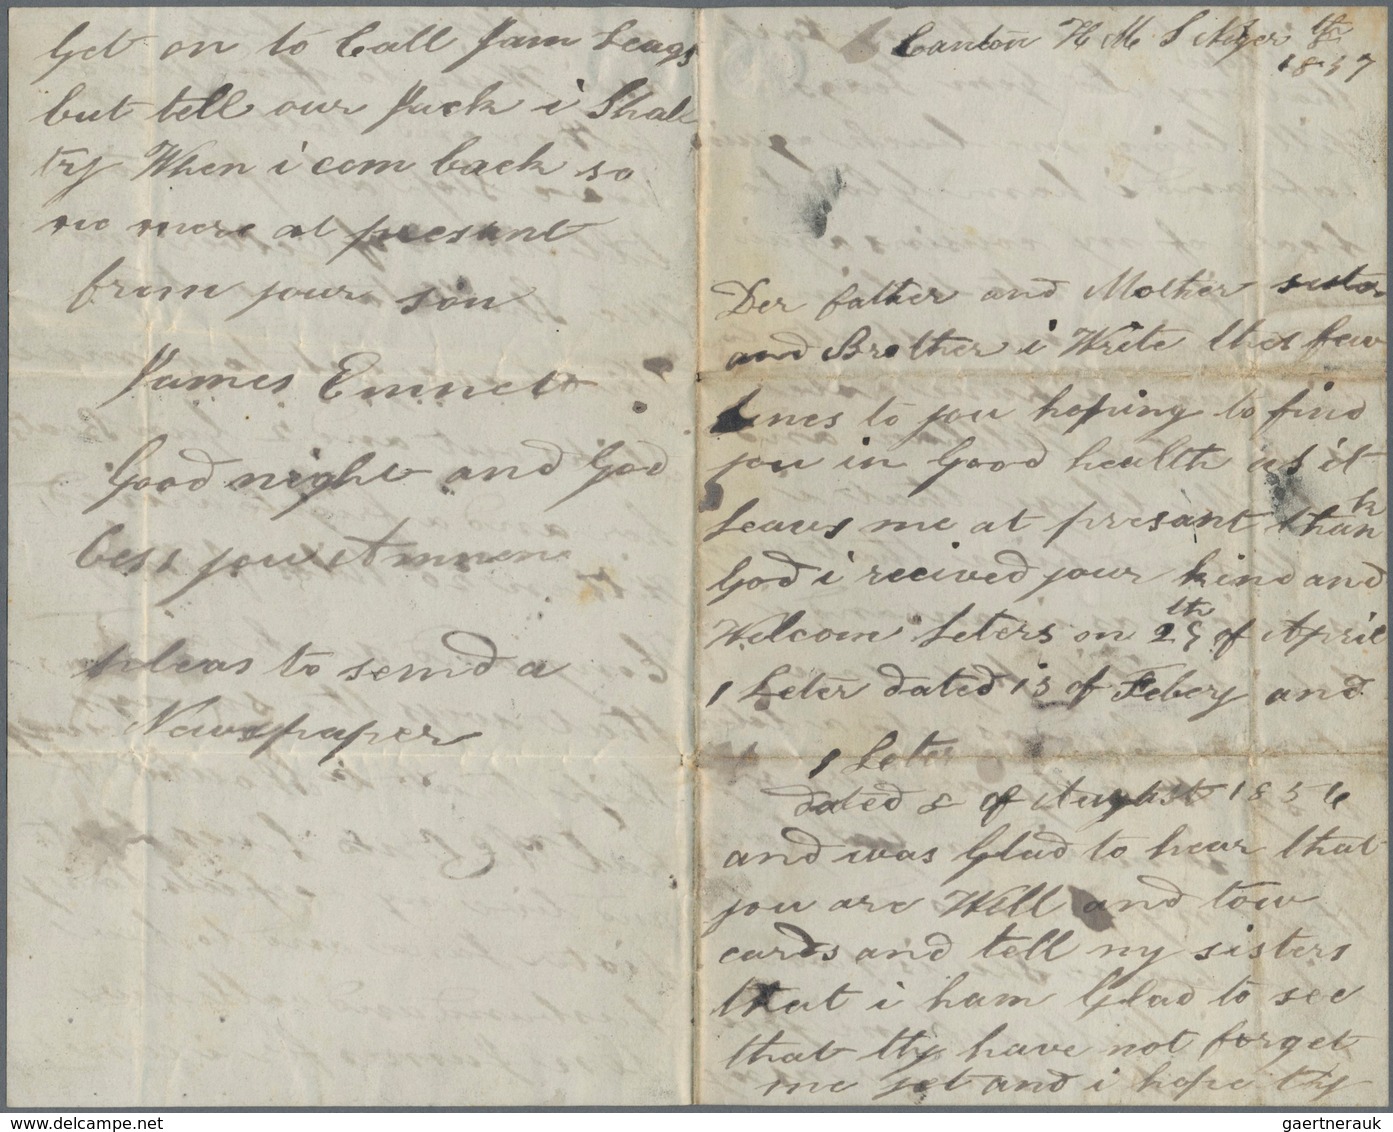 Get on to Call Jam Leags
but tell our Jack i Shall
try When i com back so
no more at presant
from your son
James Emmet
Good night and God
bess you Ammen
pleas to send a
Newspaper
Canton H M S Niger th
1857
Der father and Mother sister
and Brother i Write thes few
lines to you hoping to find
you in Good health as it
Leaves me at presant thank
God i recived your kind and
Welcom Leters on 28th of April
1 Leter dated 13 of Febery and
1 Leter
dated 8 of August 1856
and was Glad to hear that
you are Well and tow
cards and tell my sisters
that i ham Glad to see
that thy have not forget
me yet and i hope thy
gaertnerauk